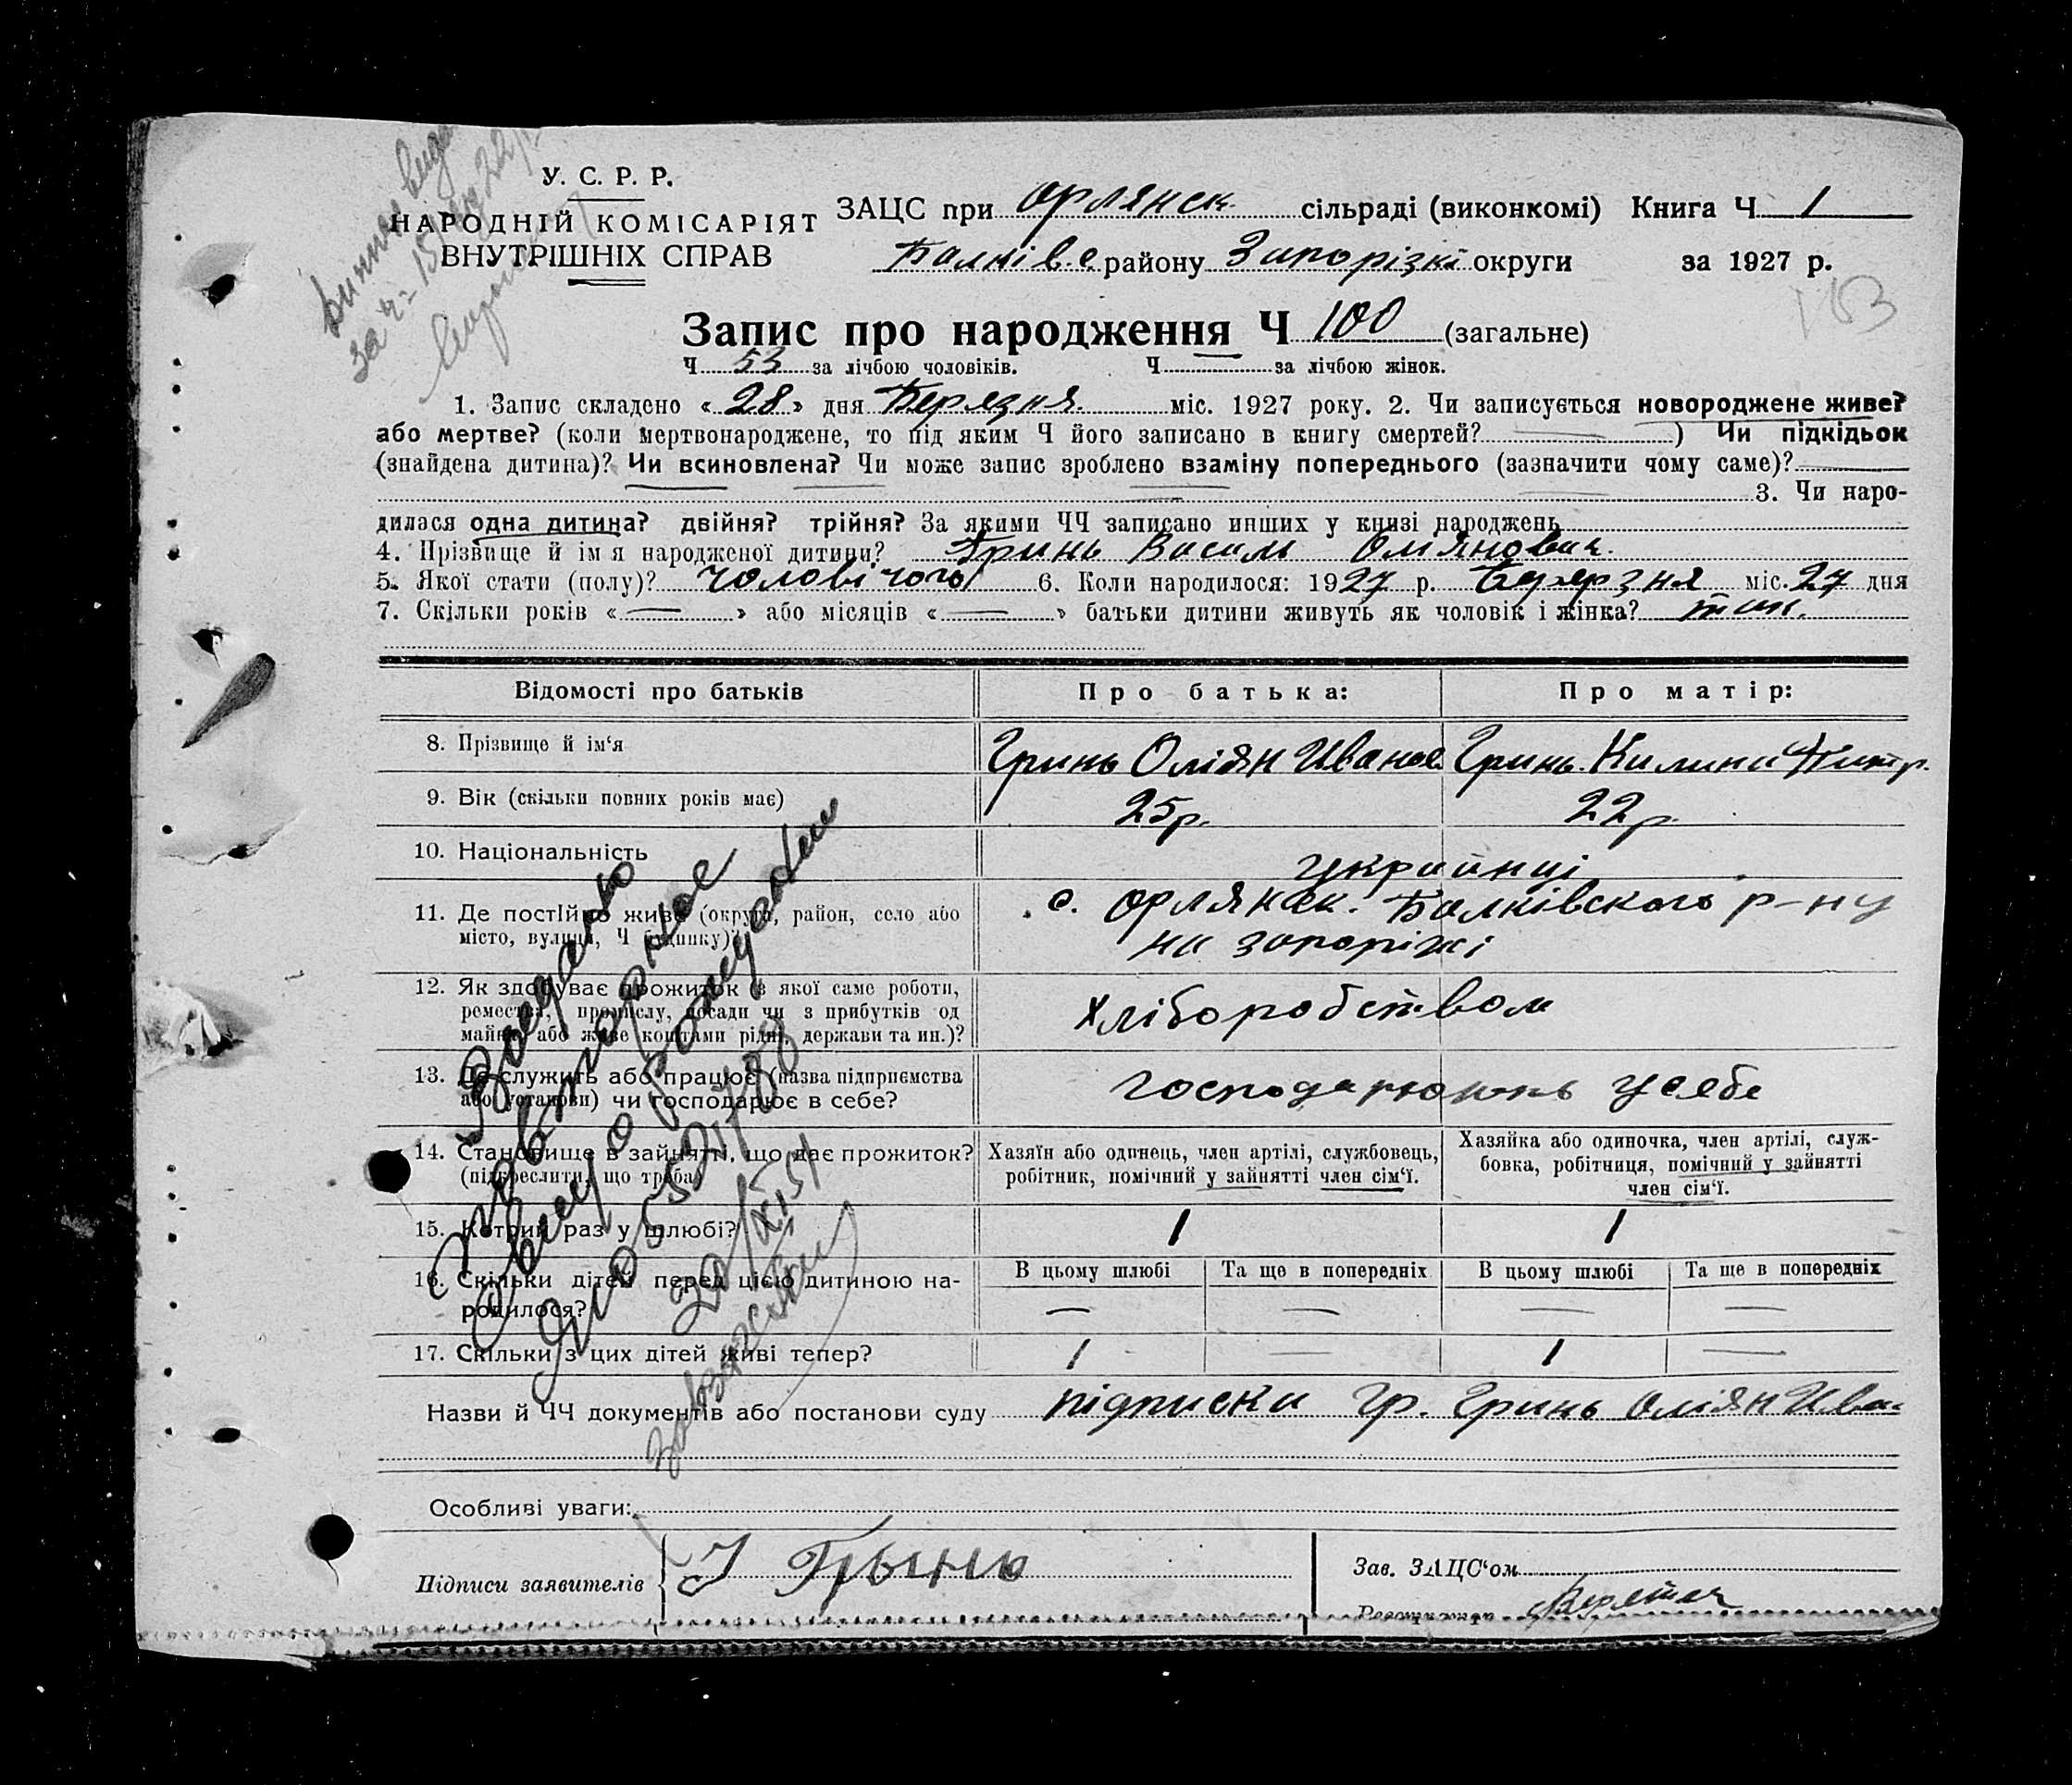 У. С. Р. Р.
НАРОДНІЙ КОМІСАРІЯТ
ВНУТРІШНІХ СПРАВ
ЗАЦС при Орлянск. сільраді (виконкомі) Книга Ч 1
Балків.с. району Запорізкі округи за 1927 р.
Запис про народження Ч 100 (загальне)
Ч 53 за лічбою чоловіків. Ч за лічбою жінок.
1. Запис складено « 28 » дня Березня. міс. 1927 року. 2. Чи записується новороджене живе?
або мертве? (коли мертвонароджене, то під яким Ч його записано в книгу смертей? ) Чи підкідьок
(знайдена дитина)? Чи всиновлена? Чи може запис зроблено взаміну попереднього (зазначити чому саме)?
3. Чи наро-
дилася одна дитина? двійня? трійня? За якими ЧЧ записано инших у книзі народжень
4. Прізвище й ім я народженої дитини? Гринь Василь Оліянович.
5. Якої стати (полу)? чоловічого 6. Коли народилося: 1927 р. Березня міс. 27 дня
7. Скільки років « — » або місяців « — » батьки дитини живуть як чоловік і жінка? так.
Відомості про батьків Про батька: Про матір:
8. Прізвище й ім'я Гринь Оліян Иванов Гринь Килина
9. Вік (скільки повних років має) 25р. 22р.
10. Національність українці
11. Де постійно живе (округа, район, село або
місто, вулиця, Ч будинку)?
с. Орлянск. Балківского р-ну
на запоріжі
12. Як здобуває прожиток (з якої саме роботи,
ремества, промислу, посади чи з прибутків од
майна або живе коштами рідні, держави та ин.)?
Хліборобством
13. Де служить або працює (назва підприємства
або установи) чи господарює в себе?
господарюють усебе
14. Становище в зайнятті, що дає прожиток?
(підкреслити, що треба)
Хазяїн або одинець, член артілі, службовець,
робітник, помічний у зайнятті член сім'ї.
Хазяйка або одиночка, член артілі, служ-
бовка, робітниця, помічний у зайнятті
член сім'ї.
15. Котрий раз у шлюбі? 1 1
16. Скільки дітей перед цією дитиною на-
родилося?
В цьому шлюбі Та ще в попередніх В цьому шлюбі Та ще в попередніх
— — — —
17. Скільки з цих дітей живі тепер? 1 — 1 —
Назви й ЧЧ документів або постанови суду підписки гр. Гринь Оліян Ива
Особливі уваги:
Підписи заявителів Грынь
Зав. ЗАЦС'ом
Выдано
повторное
свид о рождении